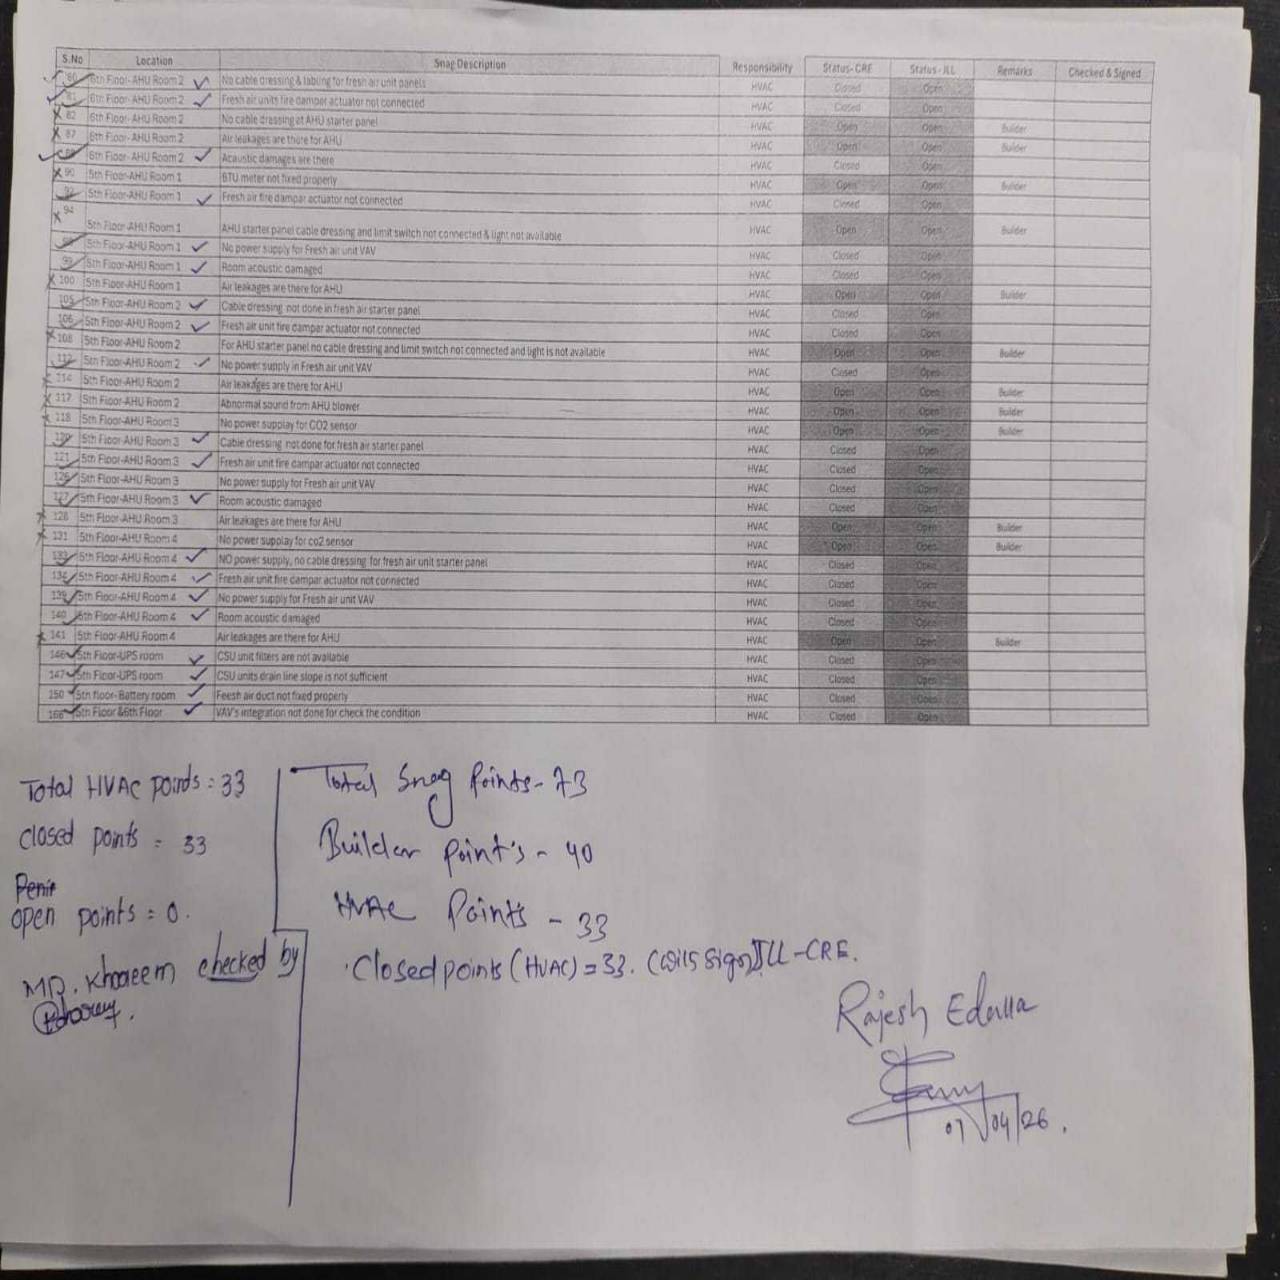 S.No Location Snag Description Responsibility Status- CRE Status - JLL Remarks Checked & Signed
80 6th Floor- AHU Room 2 No cable dressing & labling for fresh air unit panels HVAC Closed Open
81 6th Floor- AHU Room 2 Fresh air units fire damper actuator not connected HVAC Closed Open
82 6th Floor- AHU Room 2 No cable dressing at AHU starter panel HVAC Open Open Builder
87 6th Floor- AHU Room 2 Air leakages are there for AHU HVAC Open Open Builder
6th Floor- AHU Room 2 Acaustic damages are there HVAC Closed Open
90 5th Floor-AHU Room 1 BTU meter not fixed properly HVAC Open Open Builder
92 5th Floor-AHU Room 1 Fresh air fire dampar actuator not connected HVAC Closed Open
94 5th Floor-AHU Room 1 AHU starter panel cable dressing and limit switch not connected & light not available HVAC Open Open Builder
5th Floor-AHU Room 1 No power supply for Fresh air unit VAV HVAC Closed Open
99 5th Floor-AHU Room 1 Room acoustic damaged HVAC Closed Open
100 5th Floor-AHU Room 1 Air leakages are there for AHU HVAC Open Open Builder
105 5th Floor-AHU Room 2 Cable dressing not done in fresh air starter panel HVAC Closed Open
106 5th Floor-AHU Room 2 Fresh air unit fire dampar actuator not connected HVAC Closed Open
108 5th Floor-AHU Room 2 For AHU starter panel no cable dressing and limit switch not connected and light is not available HVAC Open Open Builder
112 5th Floor-AHU Room 2 No power supply in Fresh air unit VAV HVAC Closed Open
114 5th Floor-AHU Room 2 Air leakages are there for AHU HVAC Open Open Builder
117 5th Floor-AHU Room 2 Abnormal sound from AHU blower HVAC Open Open Builder
118 5th Floor-AHU Room 3 No power supplay for CO2 sensor HVAC Open Open Builder
5th Floor-AHU Room 3 Cable dressing not done for fresh air starter panel HVAC Closed Open
121 5th Floor-AHU Room 3 Fresh air unit fire dampar actuator not connected HVAC Closed Open
126 5th Floor-AHU Room 3 No power supply for Fresh air unit VAV HVAC Closed Open
127 5th Floor-AHU Room 3 Room acoustic damaged HVAC Closed Open
128 5th Floor-AHU Room 3 Air leakages are there for AHU HVAC Open Open Builder
131 5th Floor-AHU Room 4 No power supplay for co2 sensor HVAC Open Open Builder
133 5th Floor-AHU Room 4 NO power supply, no cable dressing for fresh air unit starter panel HVAC Closed Open
134 5th Floor-AHU Room 4 Fresh air unit fire dampar actuator not connected HVAC Closed Open
139 5th Floor-AHU Room 4 No power supply for Fresh air unit VAV HVAC Closed Open
140 5th Floor-AHU Room 4 Room acoustic damaged HVAC Closed Open
141 5th Floor-AHU Room 4 Air leakages are there for AHU HVAC Open Open Builder
146 5th Floor-UPS room CSU unit filters are not available HVAC Closed Open
147 5th Floor-UPS room CSU units drain line slope is not sufficient HVAC Closed Open
150 5th floor- Battery room Feesh air duct not fixed properly HVAC Closed Open
166 5th Floor &6th Floor VAV's integration not done for check the condition HVAC Closed Open
Total HVAC points = 33
closed points = 33
open points = 0.
MD. Khaleem checked by
Total Snag Points - 73
Builder Point's - 40
HVAC Points - 33
Closed points (HVAC) = 33. JLL-CRE.
Rajesh Edulla
07/04/26.